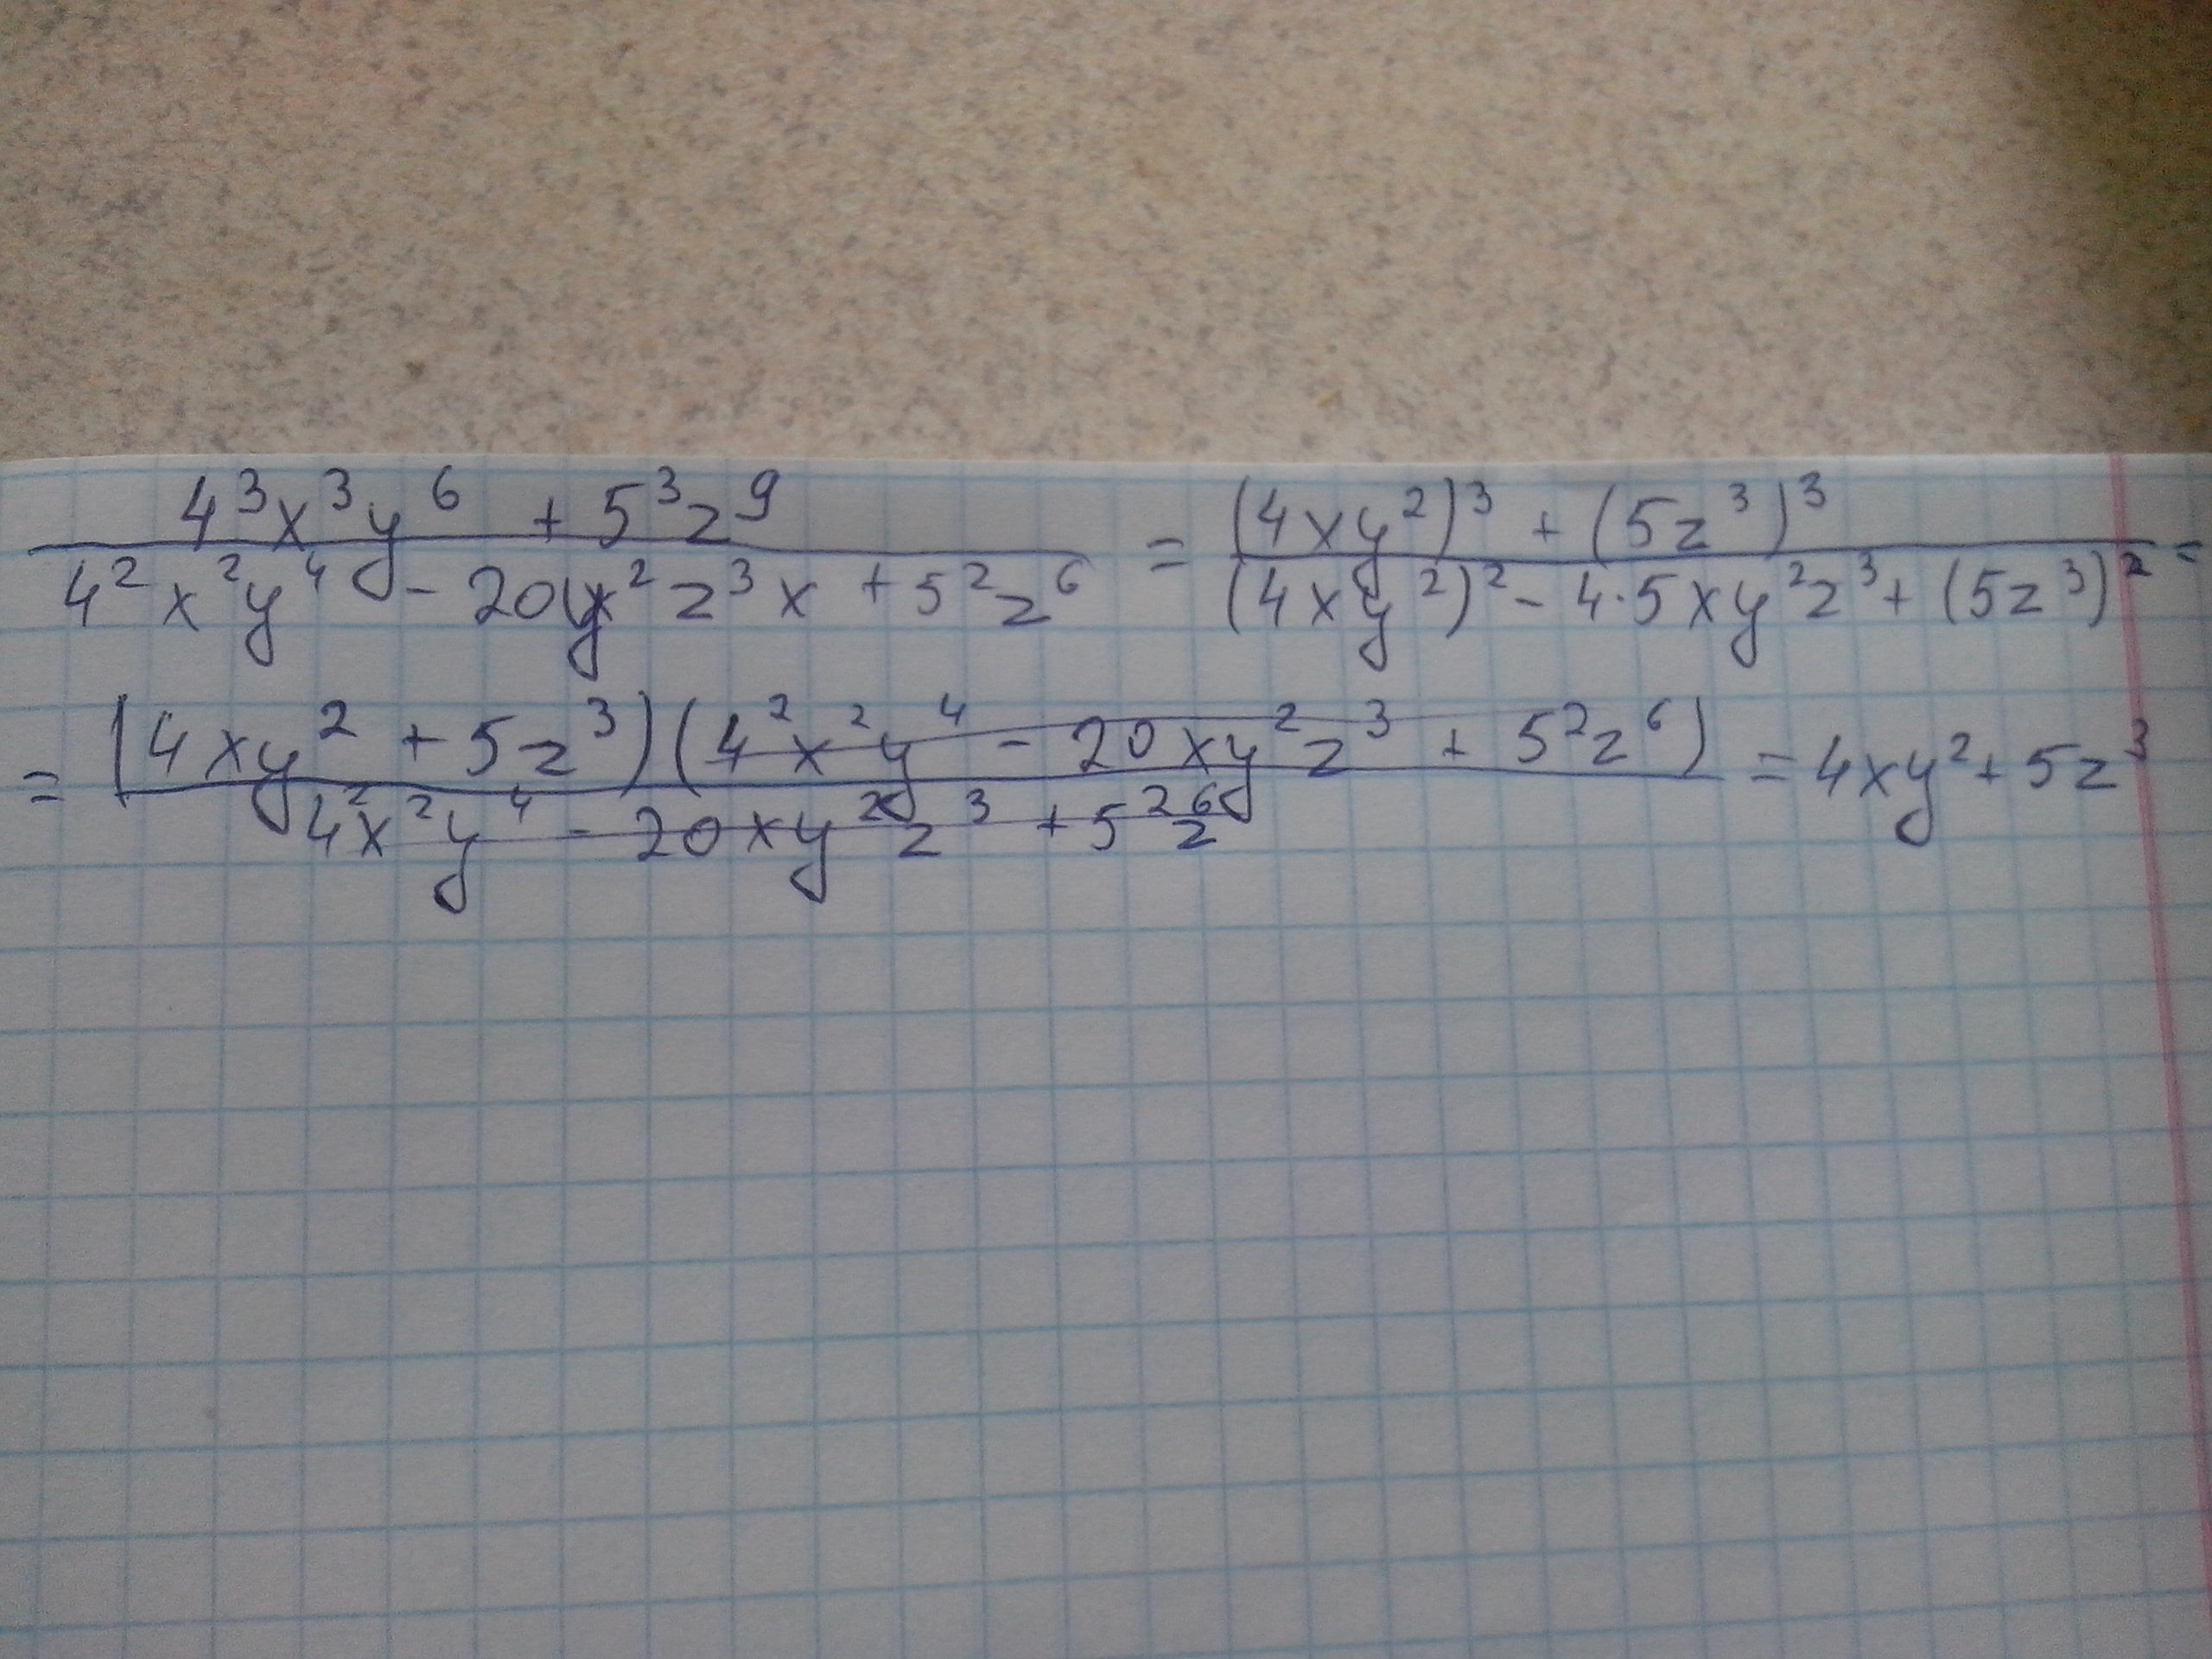 (4³x³y⁶ + 5³z⁹)/(4²x²y⁴ - 20y²z³x + 5²z⁶) = ((4xy²)³ + (5z³)³)/((4xy²)² - 4·5xy²z³ + (5z³)²) =
= ((4xy² + 5z³)(4²x²y⁴ - 20xy²z³ + 5²z⁶))/(4²x²y⁴ - 20xy²z³ + 5²z⁶) = 4xy² + 5z³